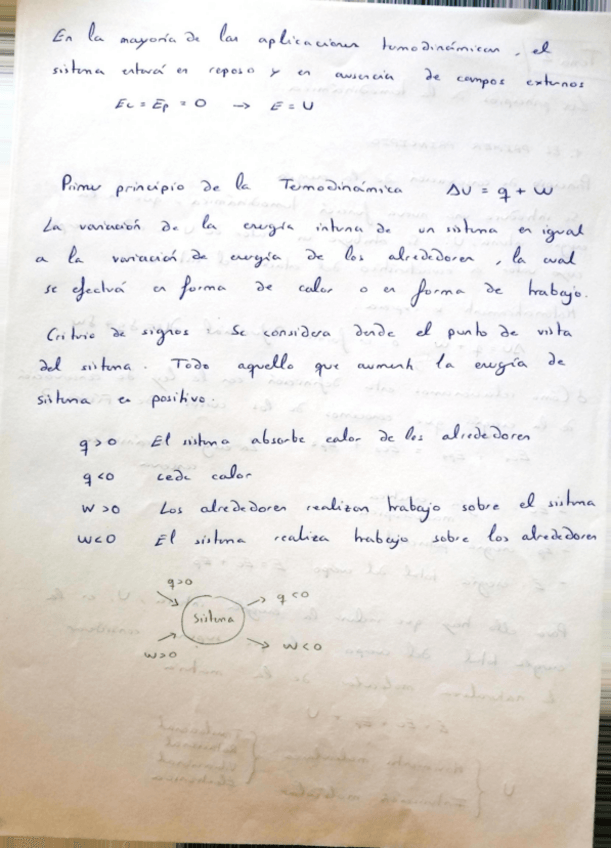 En la mayoría de las aplicaciones termodinámicas, el
sistema estará en reposo y en ausencia de campos externos
Ec = Ep = 0 → E = U
Primer principio de la Termodinámica ΔU = q + w
La variación de la energía interna de un sistema es igual
a la variación de energía de los alrededores, la cual
se efectuá en forma de calor o en forma de trabajo.
Criterio de signos: Se considera desde el punto de vista
del sistema. Todo aquello que aumente la energía de
sistema es positivo.
q>0 El sistema absorbe calor de los alrededores
q<0 cede calor
W>0 Los alrededores realizan trabajo sobre el sistema
W<0 El sistema realiza trabajo sobre los alrededores
q>0
q<0
Sistema
W>0
W<0